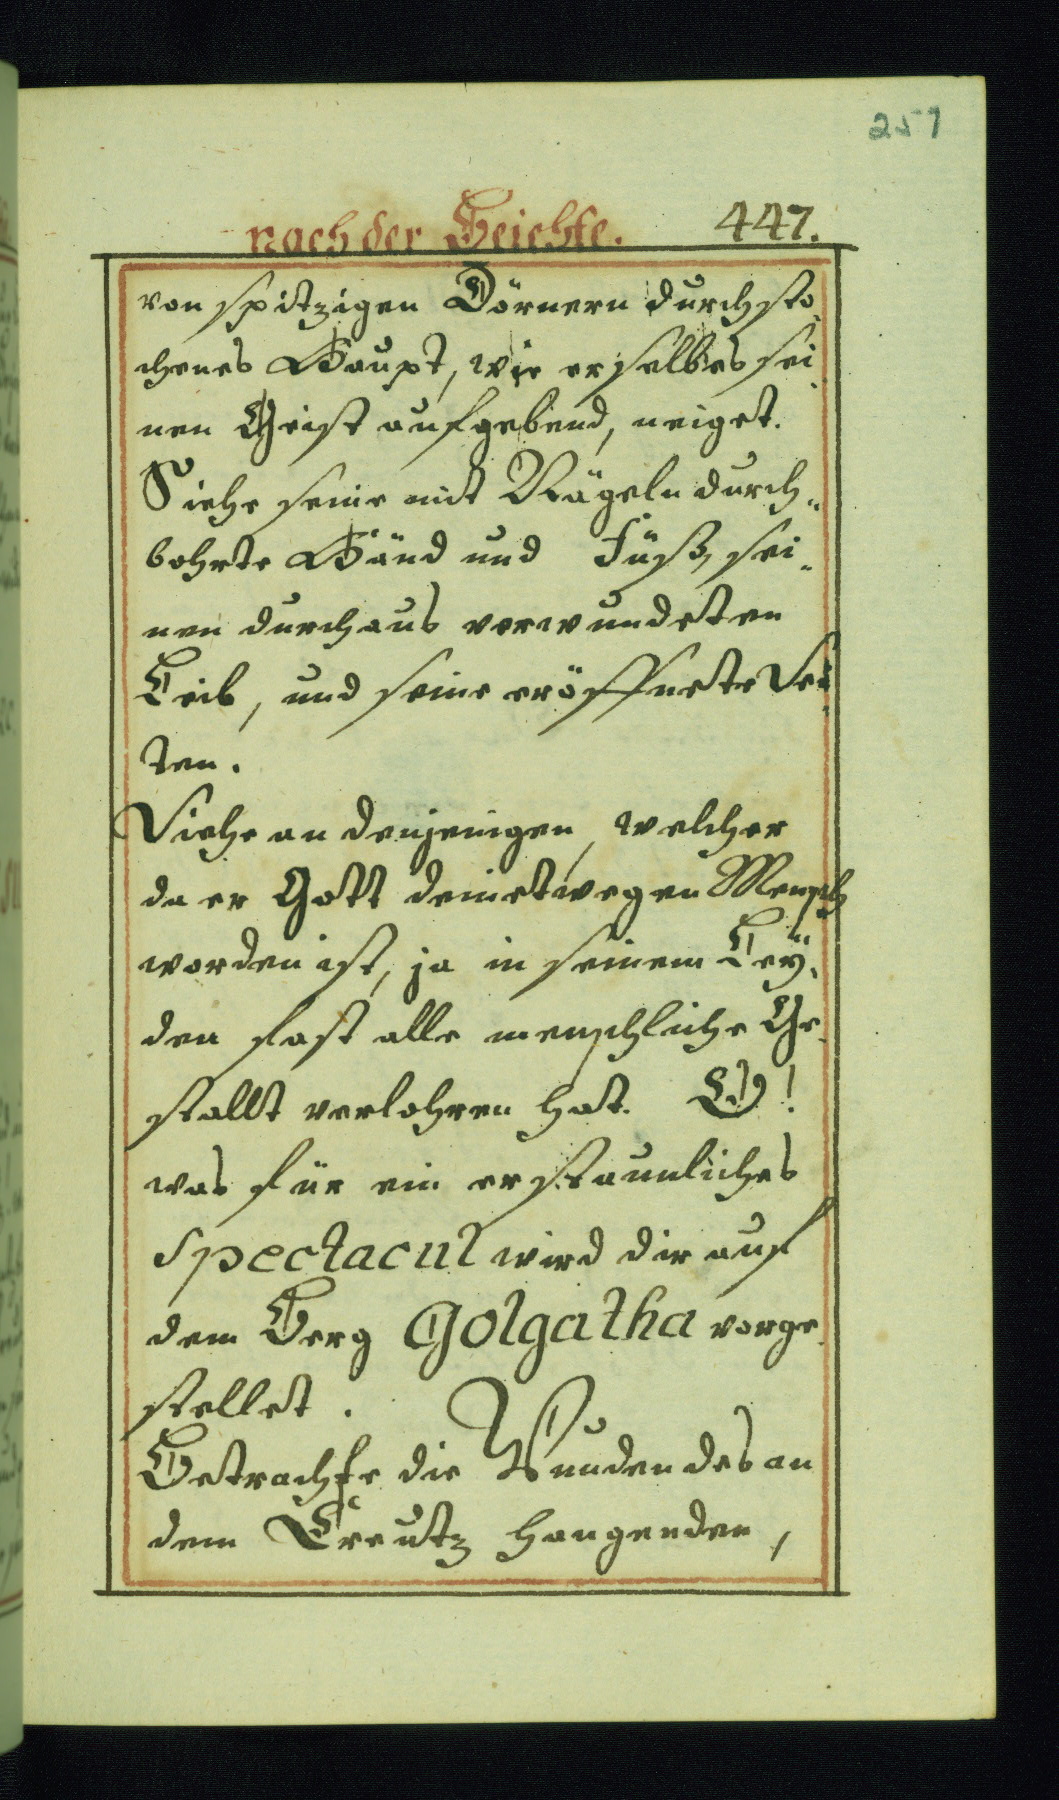 251
nach der Beichte. 447.
von spitzigen Dörnern durchsto„
chenes Haupt, wie er selbes sei„
nen Geist aufgebend, neiget.
Siehe seine mit Nägeln durch„
bohrte Händ und Füß, sei„
nen durchaus verwundeten
Leib, und seine eröffnete Sei„
ten.
Siehe an denjenigen, welcher
da er Gott deinetwegen Mensch
worden ist, ja in seinem Ley„
den fast alle menschliche Ge„
stallt verlohren hat. O!
was für ein erstaunliches
Spectacul wird dir auf
dem Berg Golgatha vorge„
stellet.
Betrachte die Wunden des an
dem Creutz hangenden,